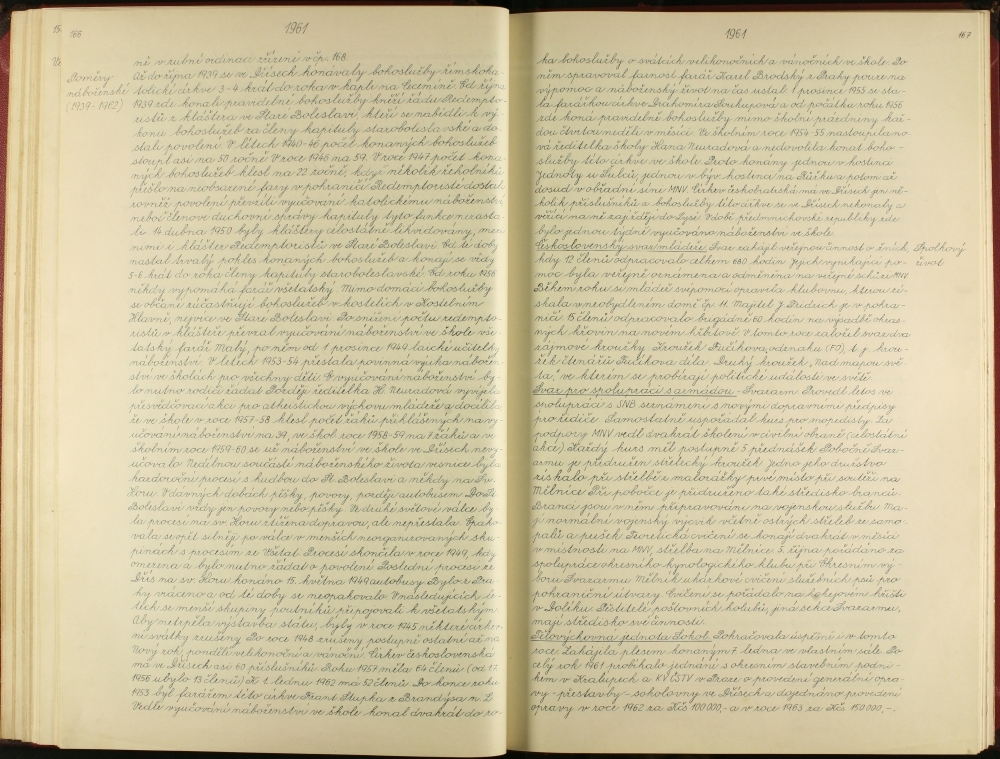 166
1961
ně v zubní ordinaci zřízené v čp. 168.
Poměry
náboženské
(1939-1962)
Až do října 1939 se ve Dřísech konávaly bohoslužby římskoka-
tolické církve 3-4 krát do roka v kapli na Cecemíně. Od října
1939 zde konali pravidelné bohoslužby kněží řádu Redempto-
ristů z kláštera ve Staré Boleslavi, kteří se nabídli k vý-
konu bohoslužeb za členy kapituly staroboleslavské a do-
stali povolení. V létech 1940-46 počet konaných bohoslužeb
stoupl asi na 50 ročně. V roce 1946 na 59. V roce 1947 počet kona-
ných bohoslužeb klesl na 22 ročně, když několik řeholníků
přešlo na neobsazené fary v pohraničí. Redemptoristé dostali
rovněž povolení převzíti vyučování katolickému náboženství
neboť členové duchovní správy kapituly tyto funkce nezasta-
li. 14. dubna 1950 byly kláštery celostátně likvidovány, mezi
nimi i klášter Redemptoristů ve Staré Boleslavi. Od té doby
nastal trvalý pokles konaných bohoslužeb a konají se vždy
5-6 krát do roka členy kapituly staroboleslavské. Od roku 1956
někdy vypomáhá farář všetatský. Mimo domácí bohoslužby
se občané zúčastňují bohoslužeb v kostelích v Kostelním
Hlavně, nejvíce ve Staré Boleslavi. Po snížení počtu redempto-
ristů v klášteře převzal vyučování náboženství ve škole vše-
tatský farář Malý, po něm od 1. prosince 1949 laické učitelky
náboženství. V létech 1953-54 přestala povinná výuka nábožen-
ství ve školách pro všechny děti. O vyučování náboženství by-
lo nutno rodiči žádat. Později ředitelka H. Neuradová vyvíjela
přesvědčovací akci pro atheistickou výchovu mládeže a docílila
že ve škole v roce 1957-58 klesl počet žáků přihlášených na vy-
učování náboženství na 39, ve škol. roce 1958-59 na 7 žáků a ve
školním roce 1959-60 se už náboženství ve škole ve Dřísech nevy-
učovalo. Nedílnou součástí náboženského života vesnice byla
každoroční procesí s hudbou do St. Boleslavi a někdy na Sv.
Horu. V dávných dobách pěšky, povozy, později autobusem. Do St.
Boleslavi vždy jen povozy nebo pěšky. Ve druhé světové válce by-
la procesí na sv. Horu ztížena dopravou, ale nepřestala. Opako-
vala se opět silněji po válce v menších neorganizovaných sku-
pinách s procesím ze Všetat. Procesí skončila v roce 1949, kdy
omezena a bylo nutno žádat o povolení. Poslední procesí ze
Dřís na sv. Horu konáno 15. května 1949 autobusy. Bylo z Pra-
hy vráceno a od té doby se neopakovalo. V následujících lé-
tech se menší skupiny poutníků připojovali k všetatským.
Aby netrpěla výstavba státu, byly v roce 1945 některé církev-
ní svátky zrušeny. Po roce 1948 zrušeny postupně ostatní až na
Nový rok, pondělí velikonoční a vánoční. Církev československá
má ve Dřísech asi 60 příslušníků. Roku 1957 měla 64 členů (od 17.
1956 ubylo 13 členů) K 1. lednu 1962 má 52 členů. Do konce roku
1953 byl farářem této církve Frant. Stupka z Brandýsa n. L.
Vedle vyučování náboženství ve škole konal dvakrát do ro-
1961
167
ka bohoslužby o svátcích velikonočních a vánočních ve škole. Po
něm spravoval farnost farář Karel Brodský z Prahy pouze na
výpomoc a náboženský život na čas ustal. 1. prosince 1955 se sta-
la farářkou církve Drahomíra Soukupová a od počátku roku 1956
zde koná pravidelné bohoslužby mimo školní prázdniny kaž-
dou čtvrtou neděli v měsíci. Ve školním roce 1954-55 nastoupila no-
vá ředitelka školy Hana Neuradová a nedovolila konat boho-
služby této církve ve škole. Proto konány jednou v hostinci
Jednoty u Šulců, jednou v býv. hostinci na Růžku a potom až
dosud v obřadní síni MNV. Církev českobratská má ve Dřísech jen ně-
kolik příslušníků a bohoslužby této církve se ve Dřísech nekonaly a
věřící na ně zajíždějí do Lysé. V době předmnichovské republiky zde
bylo jednou týdně vyučováno náboženství ve škole.
Spolkový
život
Československý svaz mládeže. Svaz zahájil veřejnou činnost o žních,
kdy 12 členů odpracovalo celkem 680 hodin. Jejich vynikající po-
moc byla veřejně oznámena a odměněna na veřejné schůzi MNV.
Během roku si mládež svépomocí opravila klubovnu, kterou zí-
skala v neobydleném domě čp. 11. Majitel J. Fridrich je v pohra-
ničí. 15 členů odpracovalo brigádně 60 hodin na výsadbě okras-
ných křovin na novém hřbitově. V tomto roce založil svaz dva
zájmové kroužky. Kroužek Fučíkova odznaku (FO), t. j. krou-
žek čtenářů Fučíkova díla. Druhý kroužek „Nad mapou svě-
ta," ve kterém se probírají politické události ve světě.
Svaz pro spolupráci s armádou - Svazarm. Provedl letos ve
spolupráci s SNB seznámení s novými dopravními předpisy
pro řidiče. Samostatně uspořádal kurs pro mopedisty. Za
podpory MNV vedl dvakrát školení v civilní obraně (celostátní
akce). Každý kurs měl postupně 5 přednášek. Pobočná Svaz-
armu je přidružen střelecký kroužek. Jedno jeho družstvo
získalo při střelbě z malorážky prvé místo při soutěži na
Mělnice. Při pobočce je přidruženo také středisko branců.
Branci jsou v něm připravováni na vojenskou službu. Ma-
jí normální vojenský výcvik včetně ostrých střeleb ze samo-
palů a pušek. Teoretická cvičení se konají dvakrát v měsíci
v místnosti na MNV, střelba na Mělnice. 5. října pořádáno za
spolupráce okresního kynologického klubu při Okresním vý-
boru Svazarmu Mělník ukázkové cvičení služebních psů pro
pohraniční útvary. Cvičení se pořádalo na hokejovém hřišti
v Dolíku. Pěstitelé poštovních holubů, jiná sekce Svazarmu,
mají středisko své činnosti.
Tělovýchovná jednota Sokol. Pokračovala úspěšně i v tomto
roce. Zahájila plesem konaným 7. ledna ve vlastním sále. Po
celý rok 1961 probíhalo jednání s okresním stavebním podni-
kem v Kralupech a KV ČSTV v Praze o provedení generální opra-
vy - přestavby - sokolovny ve Dřísech a dojednáno provedení
opravy v roce 1962 za Kčs 100000,- a v roce 1963 za Kčs 150000,-.